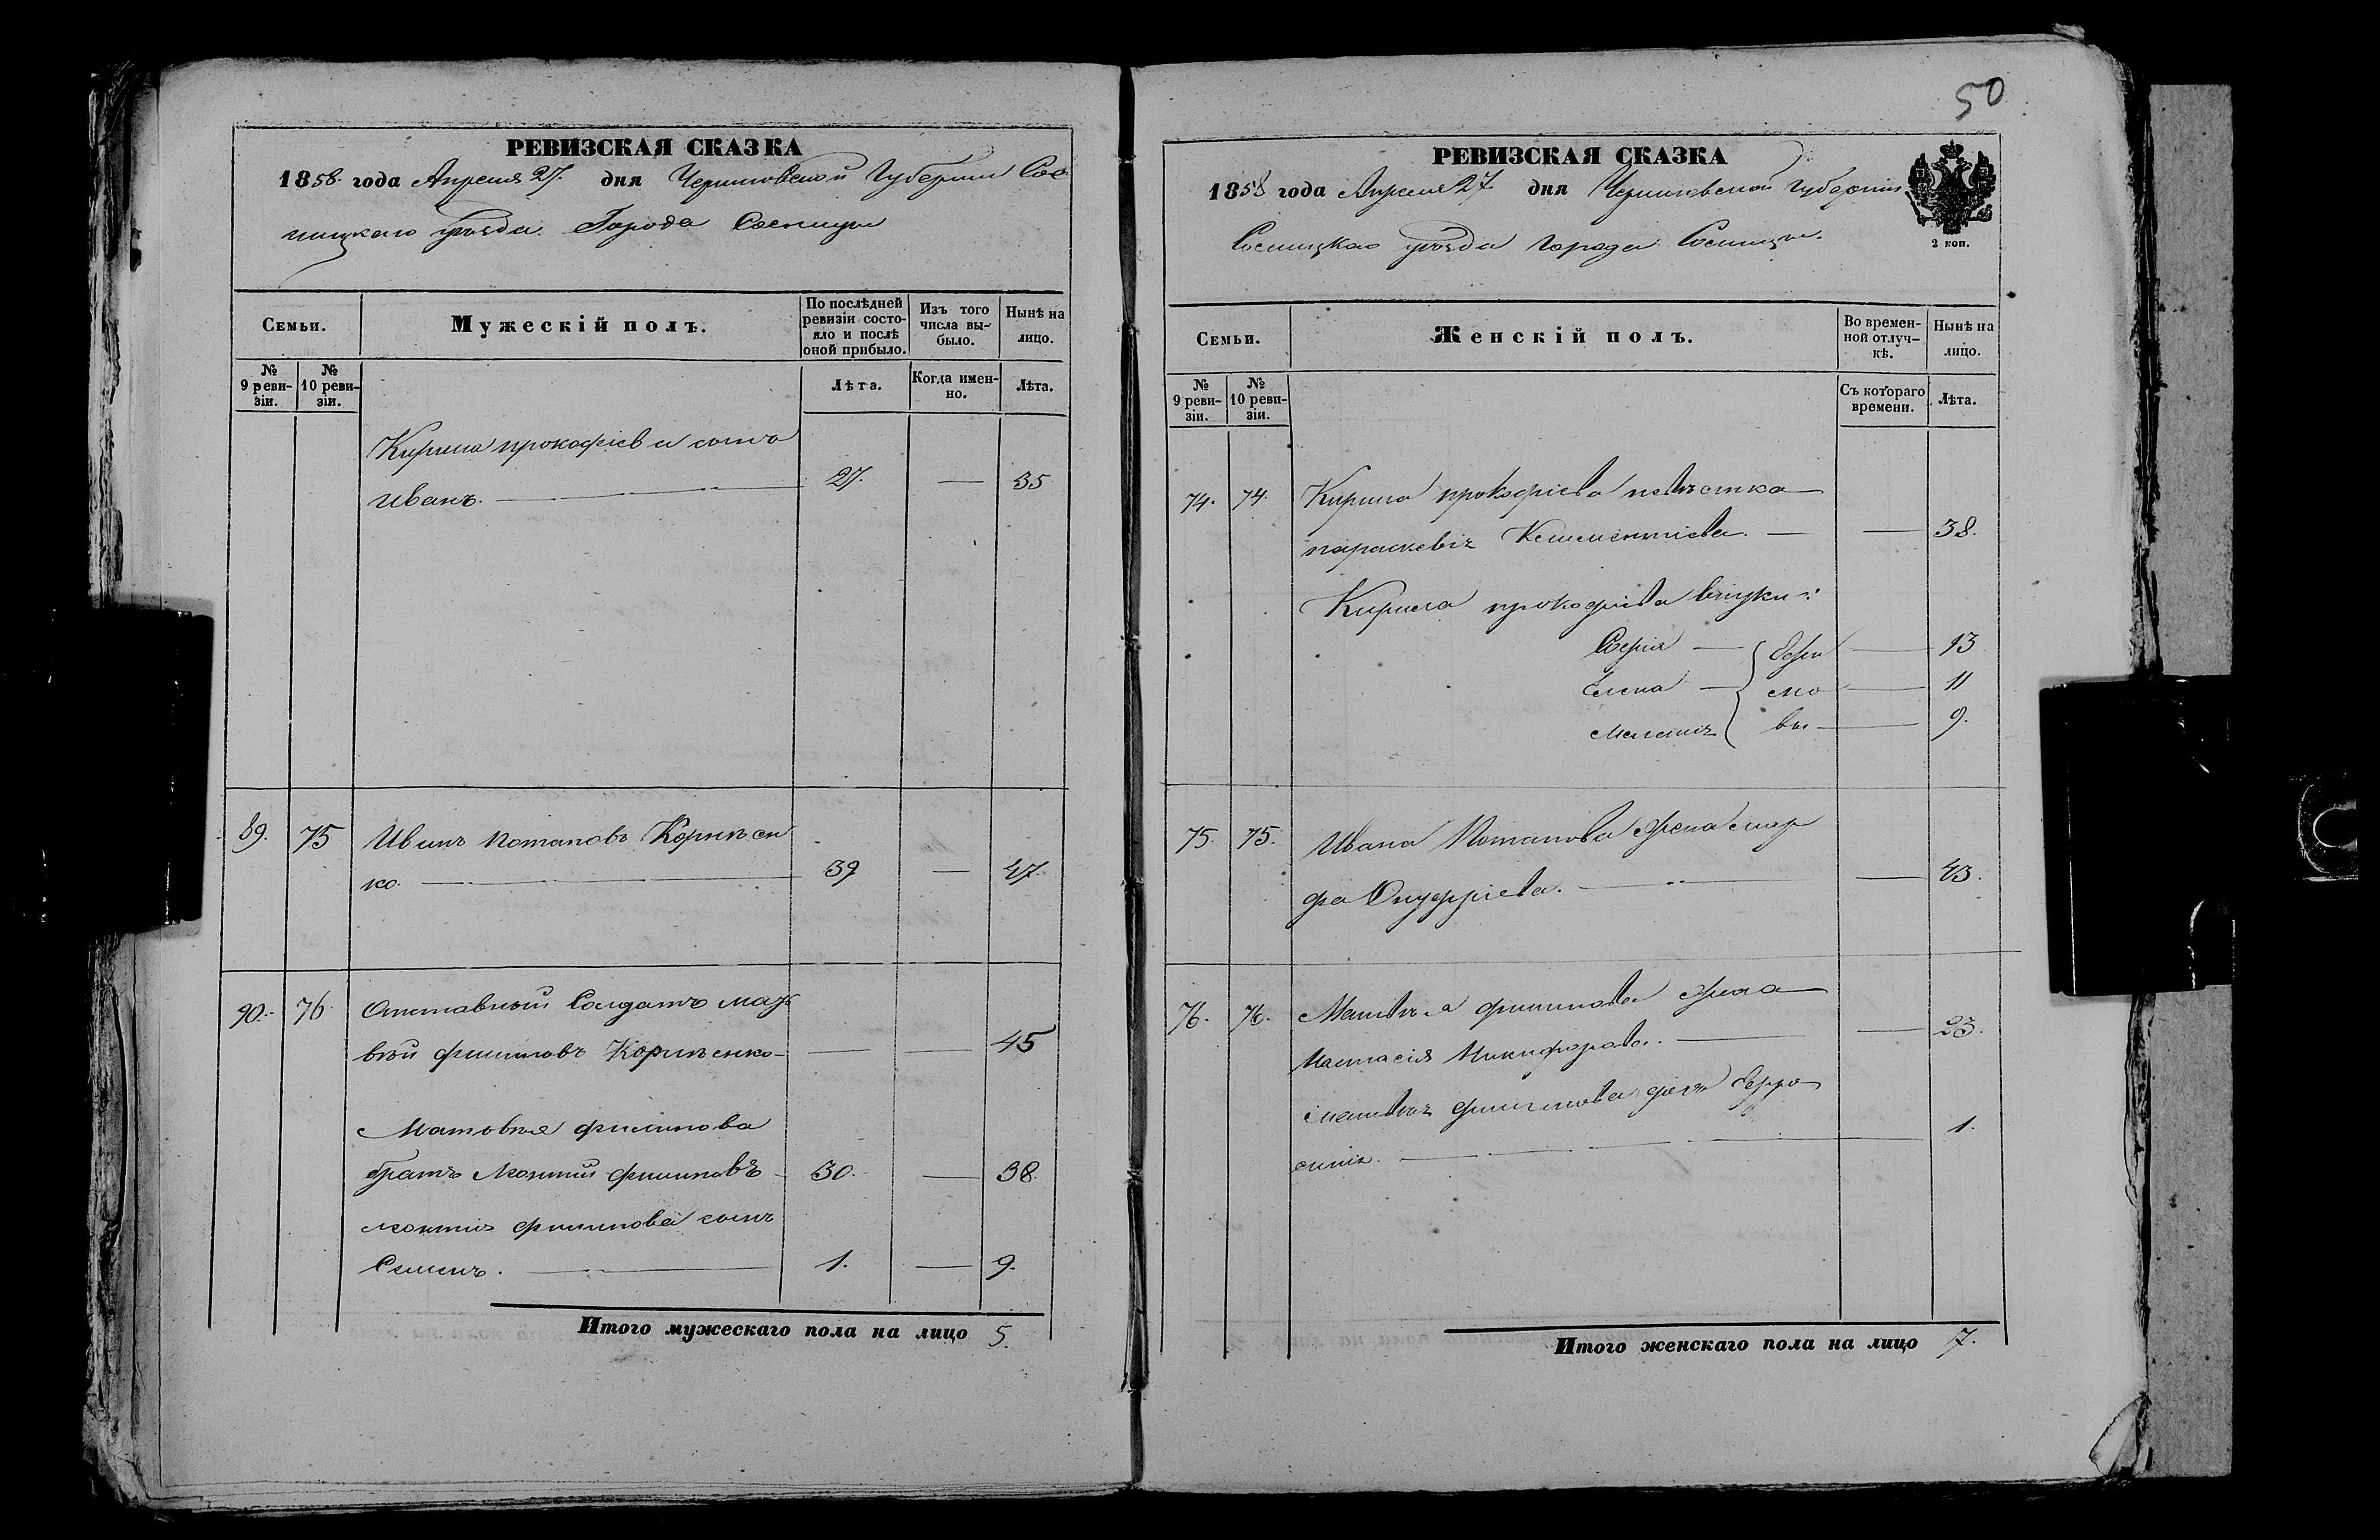 РЕВИЗСКАЯ СКАЗКА
1858. года Апреля 27. дня Черниговской Губернии Сос
ницкаго уѣзда. Города Сосницы
Семьи.
Мужескій полъ.
По послѣдней ревизіи состояло и послѣ оной прибыло.
Изъ того числа выбыло.
Нынѣ на лицо.
№ 9 ревизіи.
№ 10 ревизіи.
Лѣта.
Когда именно.
Лѣта.
Кирила прокофіева сынъ
Иванъ. 27. — 35
89. 75 Иванъ Потаповъ Корнѣен
ко. 39 — 47.
90. 76. Отставный Солдатъ Мат
вѣй филиповъ Корнѣенко — — 45
Матвѣя филипова
братъ Леонтій филиповъ 30. — 38.
Леонтія филипова сынъ
Семенъ. 1. — 9.
Итого мужескаго пола на лицо 5.
50
РЕВИЗСКАЯ СКАЗКА
1858 года Апреля 27 дня Черниговской губерніи
Сосницкаго уѣзда города Сосницы.
2 коп.
Семьи.
Женскій полъ.
Во временной отлучкѣ.
Нынѣ на лицо.
№ 9 ревизіи.
№ 10 ревизіи.
Съ котораго времени.
Лѣта.
74. 74. Кирила прокофіева невѣстка
параскевія Климентіева. — 38.
Кирила прокофіева внуки:
Софія — 13
Елена — 11
Меланія вы — 9.
75. 75. Ивана Потапова жена мар
фа Онуфріева. — 43.
76. 76. Матвѣя филипова жена
Настасія Никифорова. — 23.
Матвѣя филипова дочь Ефро
синія. 1.
Итого женскаго пола на лицо 7.